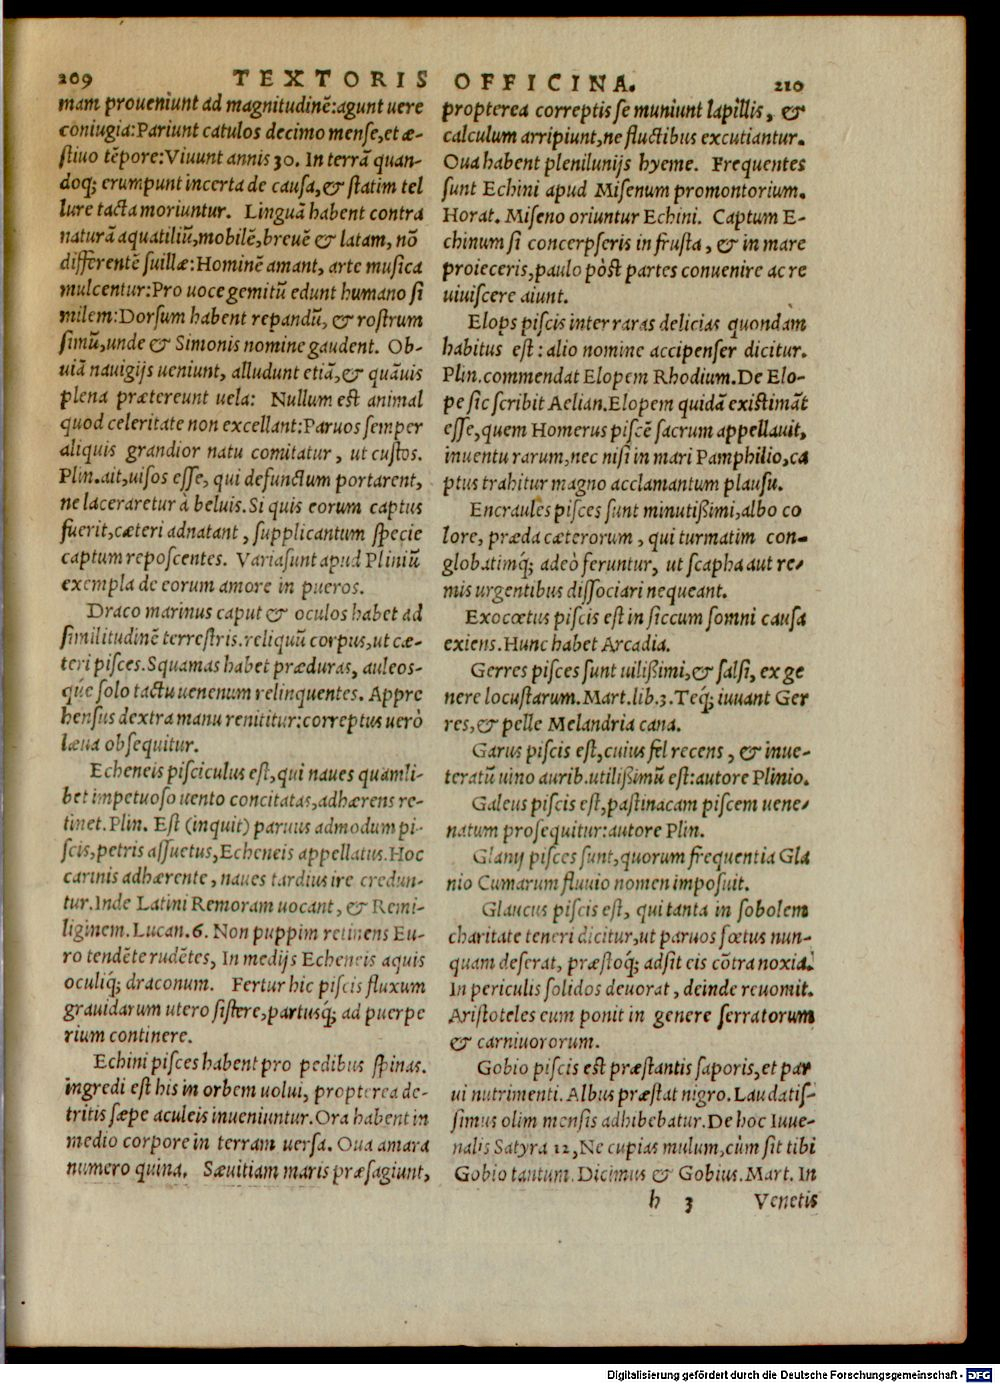 209 TEXTORIS OFFICINA. 210
mam proueniunt ad magnitudinē:agunt uere
coniugia:Pariunt catulos decimo mense,et æ-
stiuo tēpore:Viuunt annis 30. In terrā quan-
doq; erumpunt incerta de causa,& statim tel
lure tacta moriuntur. Linguā habent contra
naturā aquatiliū,mobilē,breuē & latam, nō
differentē suillæ:Hominē amant, arte musica
mulcentur:Pro uoce gemitū edunt humano si
milem:Dorsum habent repandū, & rostrum
simū,unde & Simonis nomine gaudent. Ob-
uiā nauigijs ueniunt, alludunt etiā,& quāuis
plena prætereunt uela: Nullum est animal
quod celeritate non excellant:Paruos semper
aliquis grandior natu comitatur, ut custos.
Plin.ait,uisos esse, qui defunctum portarent,
ne laceraretur à beluis.Si quis eorum captus
fuerit,cæteri adnatant, supplicantum specie
captum reposcentes. Varia sunt apud Pliniū
exempla de eorum amore in pueros.
Draco marinus caput & oculos habet ad
similitudinē terrestris.reliquū corpus,ut cæ-
teri pisces.Squamas habet præduras, auleos-
qúe solo tactu uenenum relinquentes. Appre
hensus dextra manu renititur:correptus uerò
læua obsequitur.
Echeneis pisciculus est,qui naues quamli-
bet impetuoso uento concitatas,adhærens re-
tinet.Plin. Est (inquit) paruus admodum pi-
scis,petris assuetus,Echeneis appellatus.Hoc
carinis adhærente, naues tardius ire credun-
tur.Inde Latini Remoram uocant, & Remi-
liginem.Lucan.6. Non puppim retinens Eu-
ro tendēte rudētes, In medijs Echeneis aquis
oculiq; draconum. Fertur hic piscis fluxum
grauidarum utero sistere,partusq; ad puerpe
rium continere.
Echini pisces habent pro pedibus spinas.
ingredi est his in orbem uolui, propterea de-
tritis sæpe aculeis inueniuntur.Ora habent in
medio corpore in terram uersa. Oua amara
numero quina. Sæuitiam maris præsagiunt,
propterea correptis se muniunt lapillis, &
calculum arripiunt,ne fluctibus excutiantur.
Oua habent plenilunijs hyeme. Frequentes
sunt Echini apud Misenum promontorium.
Horat. Miseno oriuntur Echini. Captum E-
chinum si concerpseris in frusta, & in mare
proieceris,paulo pòst partes conuenire ac re
uiuiscere aiunt.
Elops piscis inter raras delicias quondam
habitus est: alio nomine accipenser dicitur.
Plin.commendat Elopem Rhodium.De Elo-
pe sic scribit Aelian.Elopem quidā existimāt
esse,quem Homerus piscē sacrum appellauit,
inuentu rarum,nec nisi in mari Pamphilio,ca
ptus trahitur magno acclamantum plausu.
Encraules pisces sunt minutißimi,albo co
lore, præda cæterorum, qui turmatim con-
globatimq; adeò feruntur, ut scapha aut re-
mis urgentibus dissociari nequeant.
Exocœtus piscis est in siccum somni causa
exiens.Hunc habet Arcadia.
Gerres pisces sunt uilißimi,& salsi, ex ge
nere locustarum.Mart.lib.3.Teq; iuuant Ger
res,& pelle Melandria cana.
Garus piscis est,cuius fel recens, & inue-
teratū uino aurib.utilißimū est:autore Plinio.
Galeus piscis est,pastinacam piscem uene-
natum prosequitur:autore Plin.
Glanij pisces sunt,quorum frequentia Gla
nio Cumarum fluuio nomen imposuit.
Glaucus piscis est, qui tanta in sobolem
charitate teneri dicitur,ut paruos fœtus nun-
quam deserat, præstoq; adsit eis cōtra noxia.
In periculis solidos deuorat, deinde reuomit.
Aristoteles eum ponit in genere serratorum
& carniuororum.
Gobio piscis est præstantis saporis,et par
ui nutrimenti. Albus præstat nigro. Laudatis-
simus olim mensis adhibebatur.De hoc Iuue-
nalis Satyra 12,Ne cupias mulum,cùm sit tibi
Gobio tantum. Dicimus & Gobius.Mart. In
h 3 Venetis
Digitalisierung gefördert durch die Deutsche Forschungsgemeinschaft - DFG